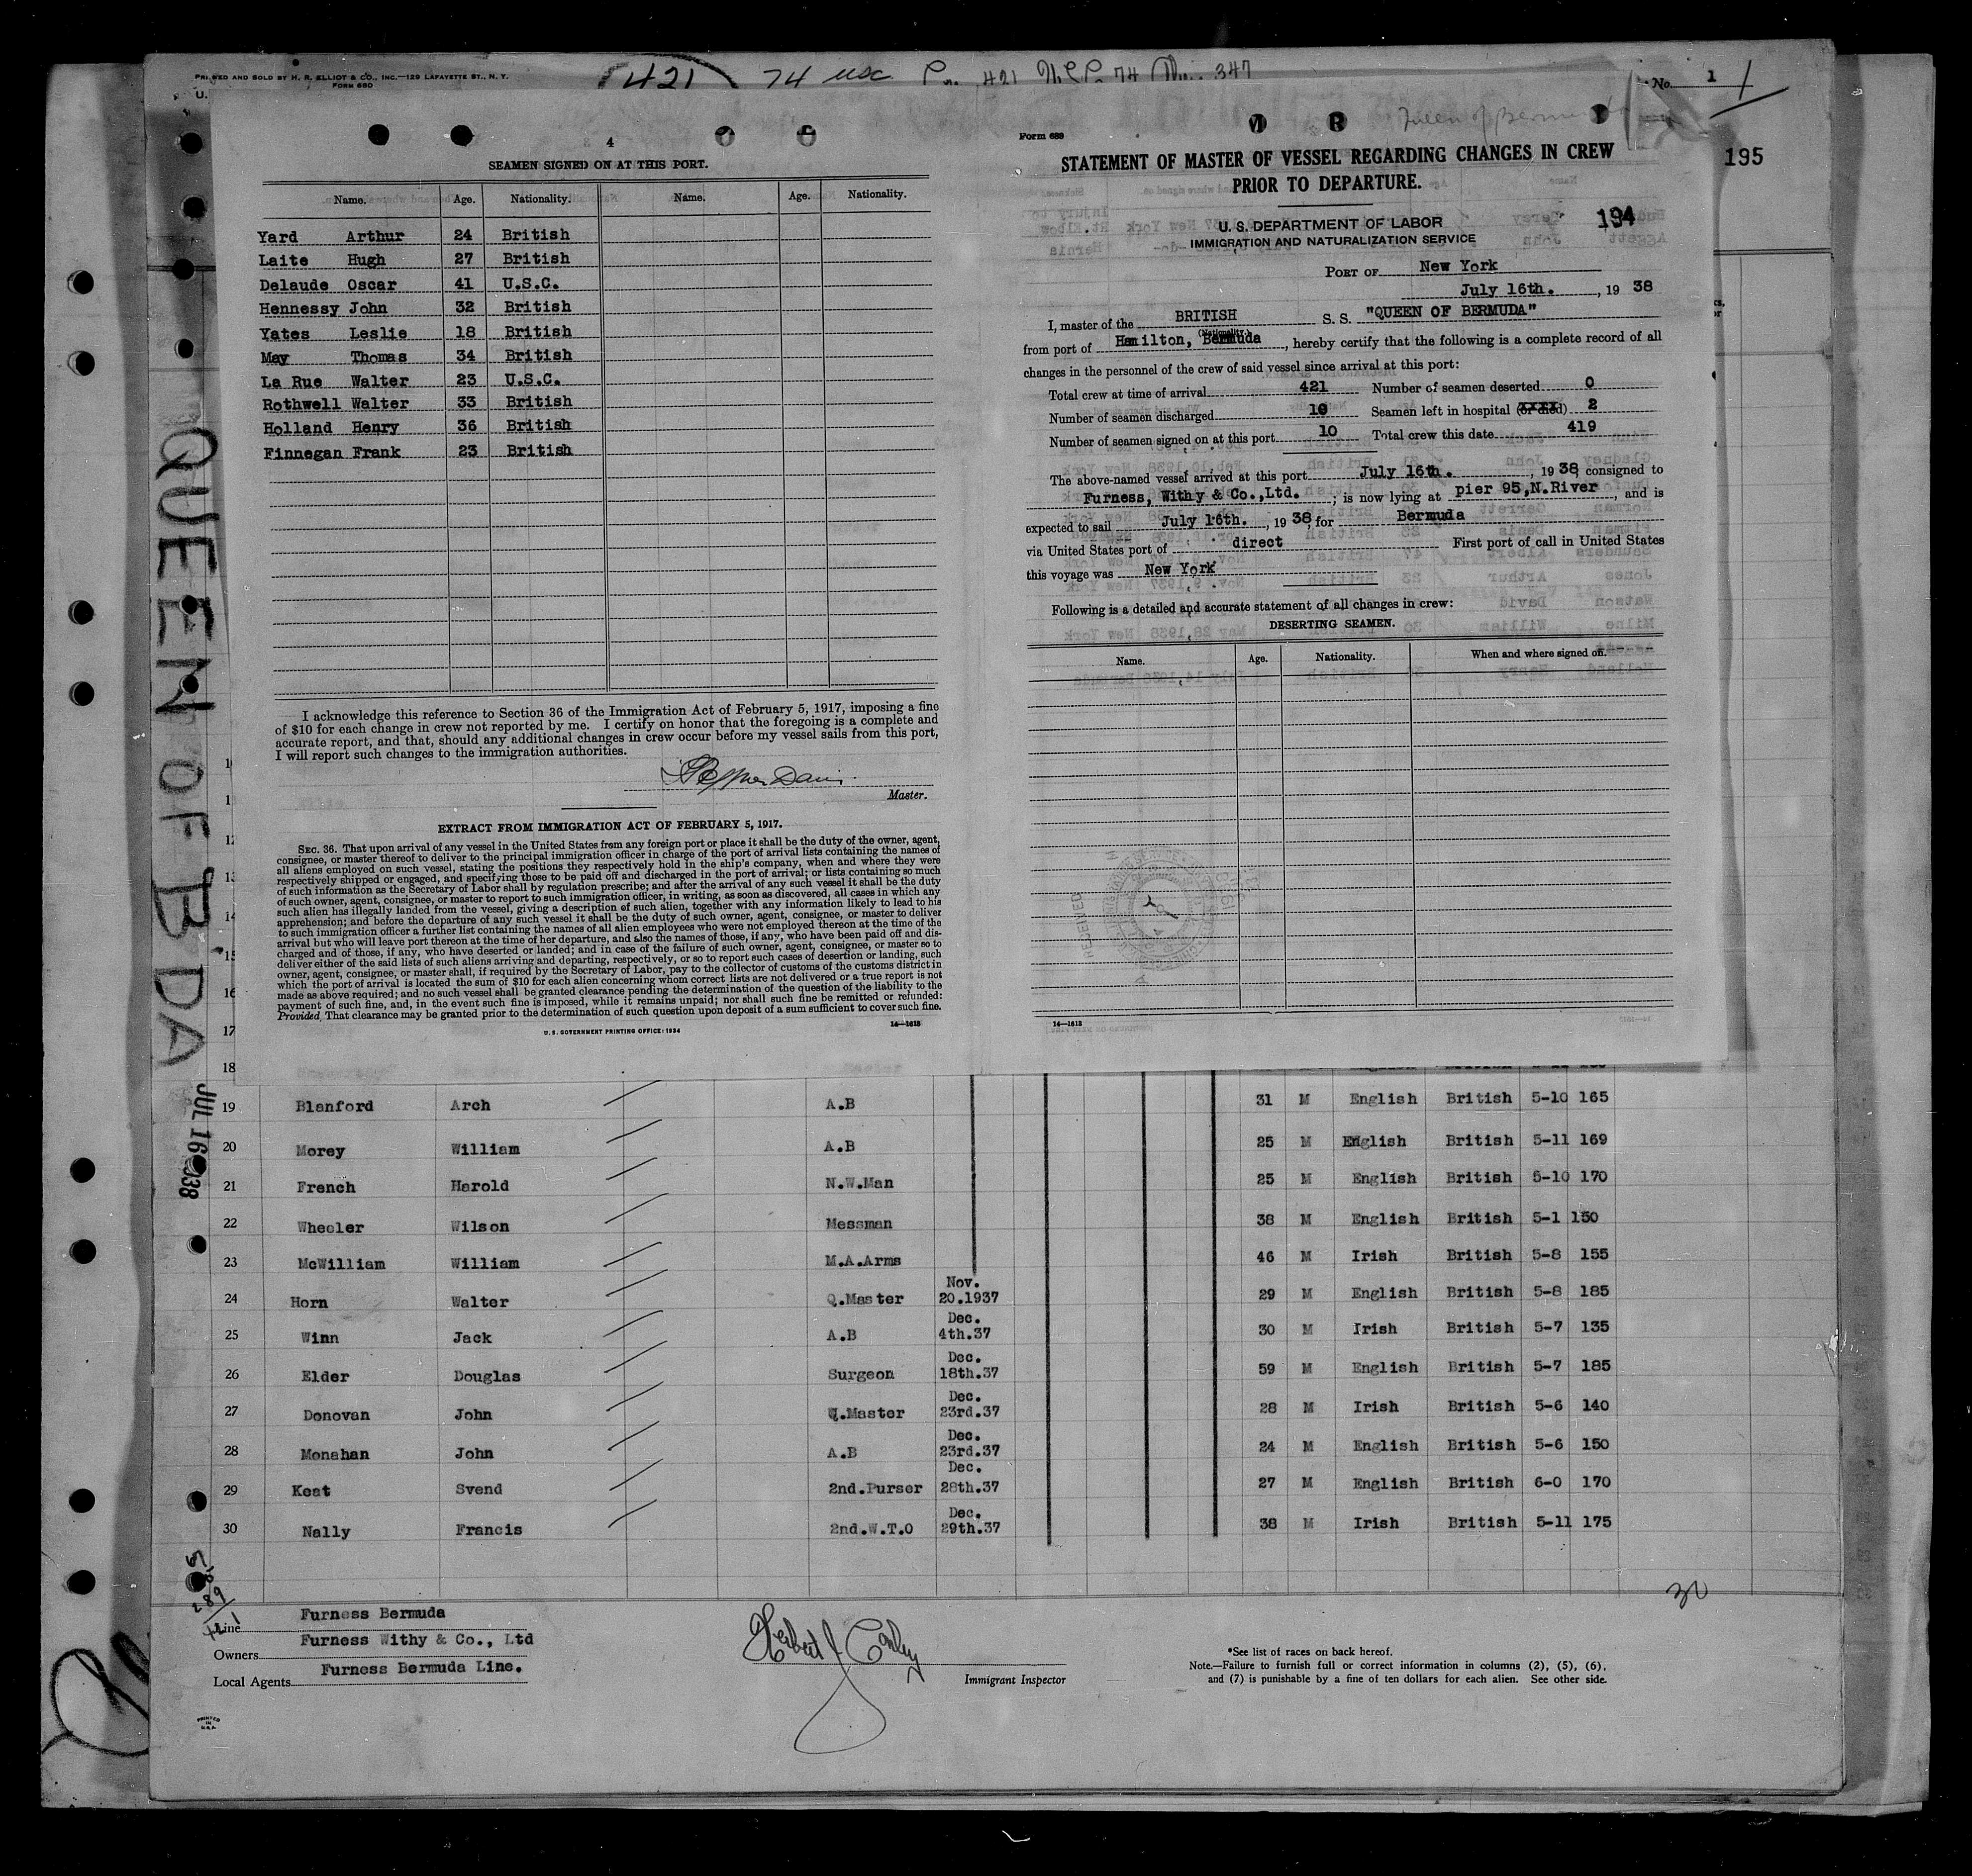 PRINTED AND SOLD BY H. R. ELLIOT & CO., INC.—129 LAFAYETTE ST., N. Y.
FORM 680
U.
421 74 usc 421 74 347
No. 1
195
4
SEAMEN SIGNED ON AT THIS PORT.
Name. Age. Nationality. Name. Age. Nationality.
Yard Arthur 24 British
Laite Hugh 27 British
Delaude Oscar 41 U.S.C.
Hennessy John 32 British
Yates Leslie 18 British
May Thomas 34 British
La Rue Walter 23 U.S.C.
Rothwell Walter 33 British
Holland Henry 36 British
Finnegan Frank 23 British
I acknowledge this reference to Section 36 of the Immigration Act of February 5, 1917, imposing a fine
of $10 for each change in crew not reported by me. I certify on honor that the foregoing is a complete and
accurate report, and that, should any additional changes in crew occur before my vessel sails from this port,
I will report such changes to the immigration authorities.
Davis
Master.
EXTRACT FROM IMMIGRATION ACT OF FEBRUARY 5, 1917.
SEC. 36. That upon arrival of any vessel in the United States from any foreign port or place it shall be the duty of the owner, agent,
consignee, or master thereof to deliver to the principal immigration officer in charge of the port of arrival lists containing the names of
all aliens employed on such vessel, stating the positions they respectively hold in the ship's company, when and where they were
respectively shipped or engaged, and specifying those to be paid off and discharged in the port of arrival; or lists containing so much
of such information as the Secretary of Labor shall by regulation prescribe; and after the arrival of any such vessel it shall be the duty
of such owner, agent, consignee, or master to report to such immigration officer, in writing, as soon as discovered, all cases in which any
such alien has illegally landed from the vessel, giving a description of such alien, together with any information likely to lead to his
apprehension; and before the departure of any such vessel it shall be the duty of such owner, agent, consignee, or master to deliver
to such immigration officer a further list containing the names of all alien employees who were not employed thereon at the time of the
arrival but who will leave port thereon at the time of her departure, and also the names of those, if any, who have been paid off and dis-
charged and of those, if any, who have deserted or landed; and in case of the failure of such owner, agent, consignee, or master so to
deliver either of the said lists of such aliens arriving and departing, respectively, or so to report such cases of desertion or landing, such
owner, agent, consignee, or master shall, if required by the Secretary of Labor, pay to the collector of customs of the customs district in
which the port of arrival is located the sum of $10 for each alien concerning whom correct lists are not delivered or a true report is not
made as above required; and no such vessel shall be granted clearance pending the determination of the question of the liability to the
payment of such fine, and, in the event such fine is imposed, while it remains unpaid; nor shall such fine be remitted or refunded:
Provided, That clearance may be granted prior to the determination of such question upon deposit of a sum sufficient to cover such fine.
U. S. GOVERNMENT PRINTING OFFICE: 1934 14—1613
Form 689
Queen of Bermuda
STATEMENT OF MASTER OF VESSEL REGARDING CHANGES IN CREW
PRIOR TO DEPARTURE.
U. S. DEPARTMENT OF LABOR 194
IMMIGRATION AND NATURALIZATION SERVICE
PORT OF New York
July 16th. , 19 38
I, master of the BRITISH S. S. "QUEEN OF BERMUDA"
(Nationality.)
from port of Hamilton, Bermuda , hereby certify that the following is a complete record of all
changes in the personnel of the crew of said vessel since arrival at this port:
Total crew at time of arrival 421 Number of seamen deserted 0
Number of seamen discharged 10 Seamen left in hospital (or died) 2
Number of seamen signed on at this port 10 Total crew this date 419
The above-named vessel arrived at this port July 16th. , 19 38, consigned to
Furness, Withy & Co.,Ltd. ; is now lying at pier 95,N.River , and is
expected to sail July 16th. , 19 38, for Bermuda
via United States port of direct First port of call in United States
this voyage was New York
Following is a detailed and accurate statement of all changes in crew:
DESERTING SEAMEN.
Name. Age. Nationality. When and where signed on.
RECEIVED
14—1613
QUEEN OF BDA
JUL 16 1938
17
18
19 Blanford Arch A.B 31 M English British 5-10 165
20 Morey William A.B 25 M English British 5-11 169
21 French Harold N.W.Man 25 M English British 5-10 170
22 Wheeler Wilson Messman 38 M English British 5-1 150
23 McWilliam William M.A.Arms 46 M Irish British 5-8 155
24 Horn Walter Q.Master Nov. 20.1937 29 M English British 5-8 185
25 Winn Jack A.B Dec. 4th.37 30 M Irish British 5-7 135
26 Elder Douglas Surgeon Dec. 18th.37 59 M English British 5-7 185
27 Donovan John Q.Master Dec. 23rd.37 28 M Irish British 5-6 140
28 Monahan John A.B Dec. 23rd.37 24 M English British 5-6 150
29 Keat Svend 2nd.Purser Dec. 28th.37 27 M English British 6-0 170
30 Nally Francis 2nd.W.T.O Dec. 29th.37 38 M Irish British 5-11 175
30
Line Furness Bermuda
Owners Furness Withy & Co., Ltd
Local Agents Furness Bermuda Line.
Immigrant Inspector
*See list of races on back hereof.
Note.—Failure to furnish full or correct information in columns (2), (5), (6),
and (7) is punishable by a fine of ten dollars for each alien. See other side.
PRINTED
IN
U.S.A.